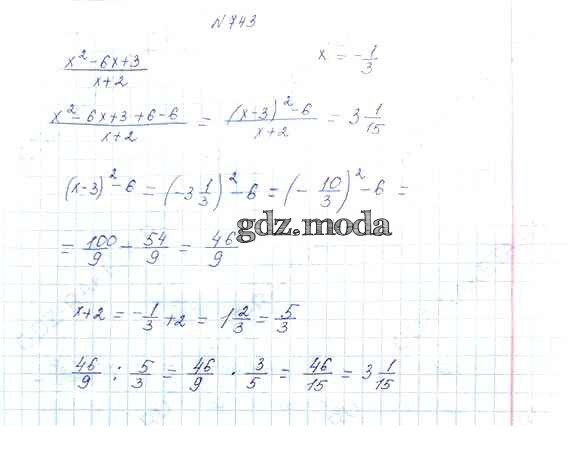 N 743
x² - 6x + 3 / x + 2    x = - 1/3
x² - 6x + 3 + 6 - 6 / x + 2 = (x - 3)² - 6 / x + 2 = 3 1/15
(x - 3)² - 6 = (-3 1/3)² - 6 = (- 10/3)² - 6 =
gdz.moda
= 100/9 - 54/9 = 46/9
x + 2 = - 1/3 + 2 = 1 2/3 = 5/3
46/9 : 5/3 = 46/9 · 3/5 = 46/15 = 3 1/15